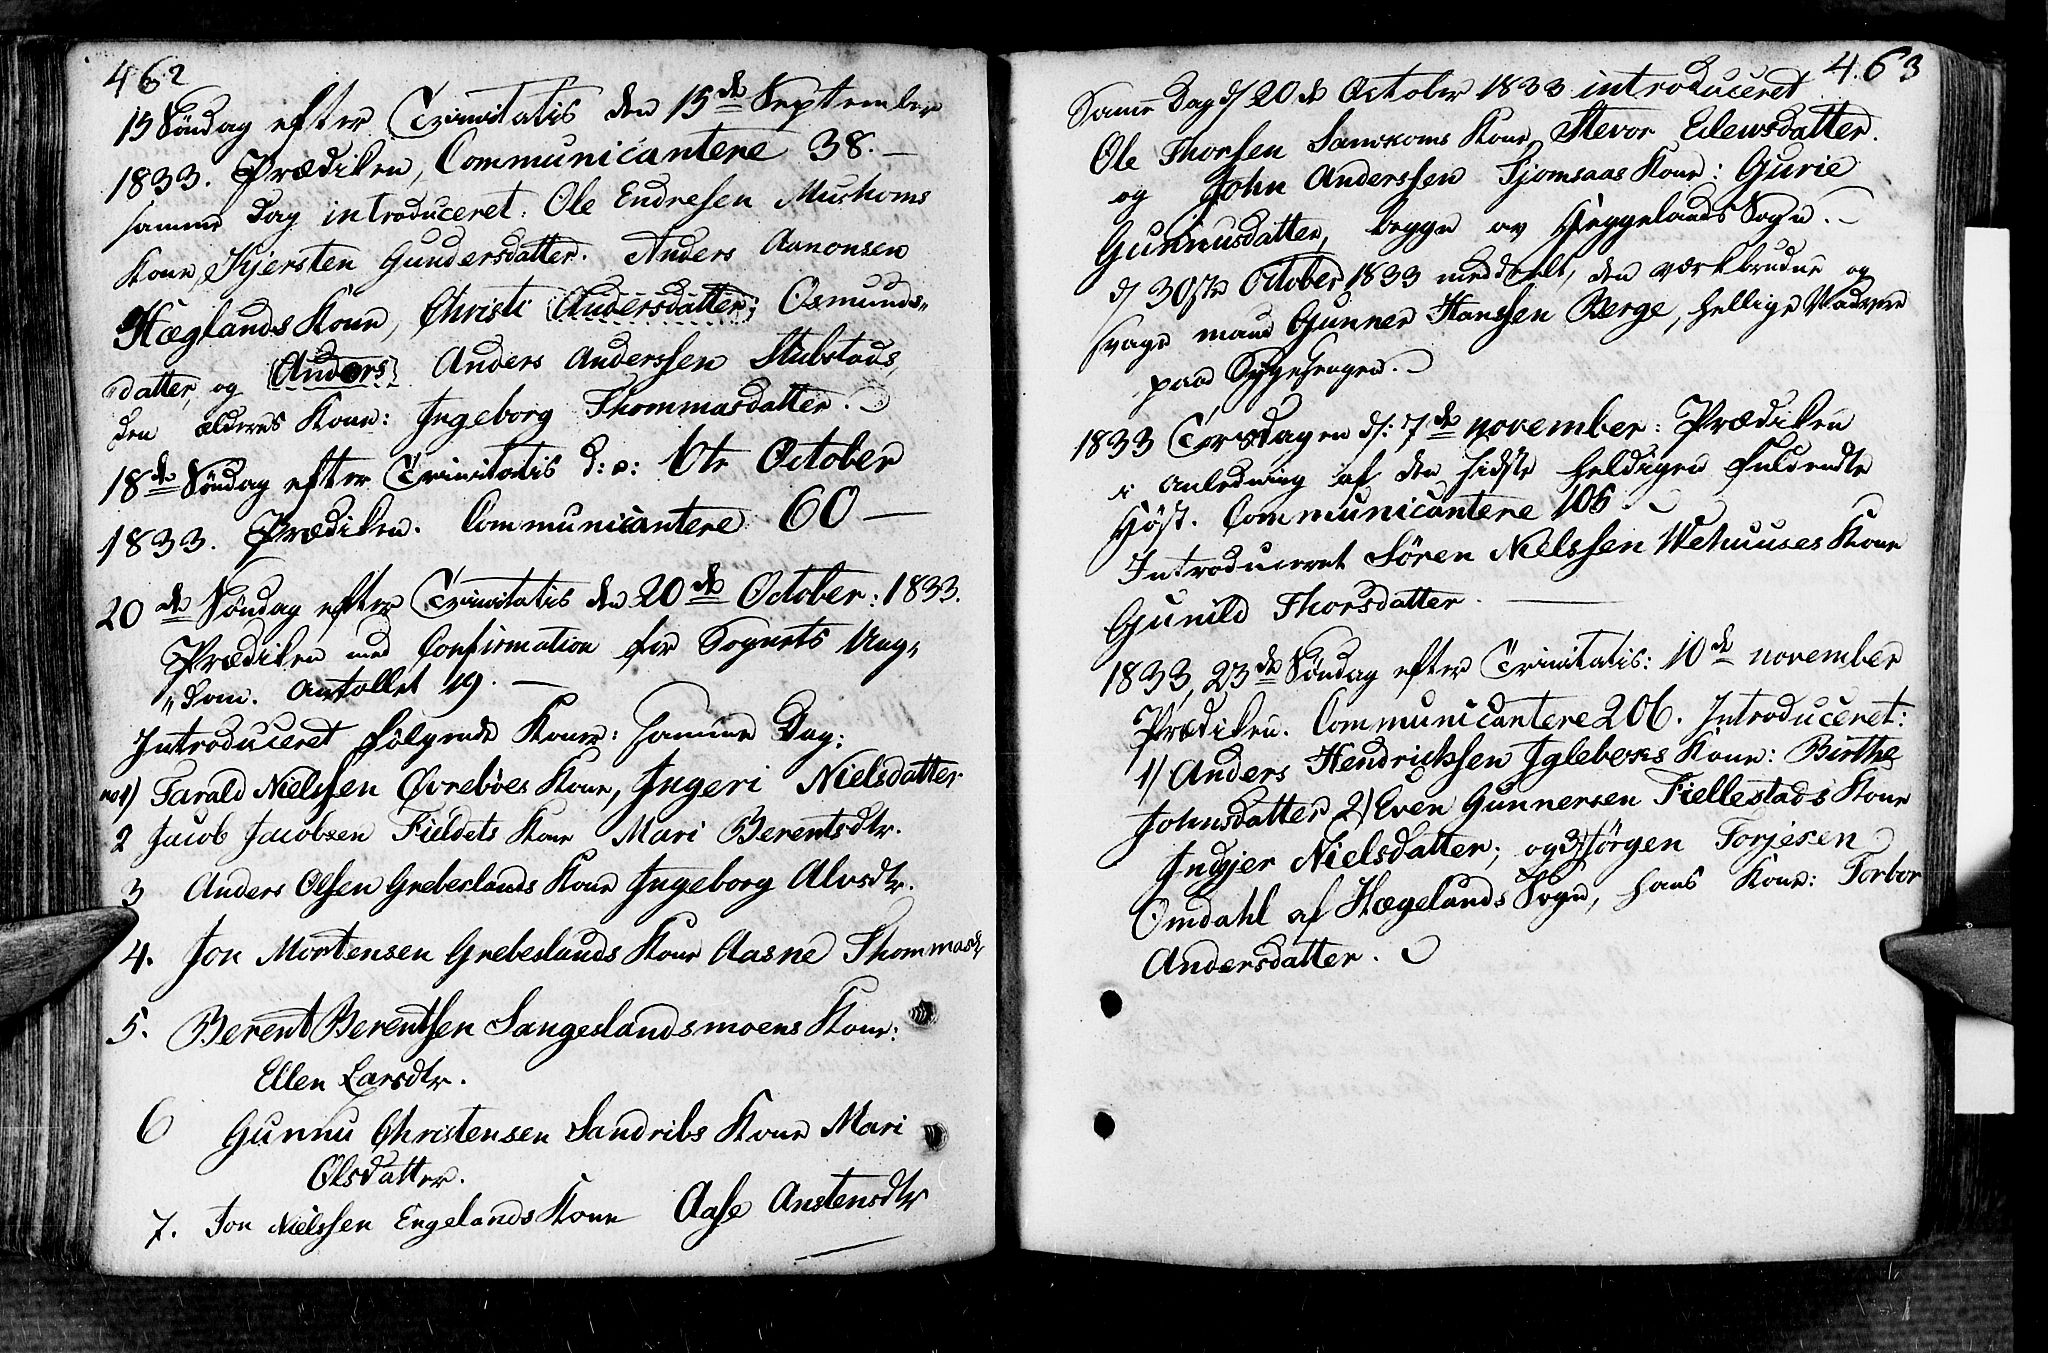 462
15 Söndag efter Trinitatis den 15de September
1833. Prædiken, Communicantere 38. —
samme Dag introduceret: Ole Endresen Muskoms
Kone, Kjersten Gundersdatter. Anders Aanonsen
Hæglands Kone, Christi Andersdatter; Osmunds-
datter, og Anders Anders Anderssen Stubstads,
den ældres Kone: Ingeborg Thommasdatter.
18de Söndag efter Trinitatis d: 6te October
1833. Prædiken. Communicantere 60 —
20de Söndag efter Trinitatis den 20de October: 1833.
Prædiken med Confirmation for Sognets Ung-
dom. Antallet 19. —
Introduceret følgende Koner: samme Dag:
no 1) Tarald Nielssen Øvrebøes Kone, Ingeri Nielsdatter
2 Jacob Jacobsen Fieldets Kone Mari Berentsdtr.
3 Anders Olsen Grebeslands Kone Ingeborg Alvsdtr.
4. Jon Mortensen Grebeslands Kone Aasne Thommasd
5. Berent Berentsen Langeslandsmoens Kone:
Ellen Larsdtr.
6 Gunnu Christensen Sandribs Kone Mari
Olsdatter.
7. Jon Nielssen Engelands Kone Aase Anstensdtr
463
Samme Dag d/ 20de October 1833 introduceret
Ole Thorsen Kone Stevor
og John Anderssen Tjomsaas Kone: Gurie
Gunnusdatter, begge av Heggelands Sogn. —
d/ 30te October 1833 meddeelt, den værkbrudne og
svage mand Gunner Hanssen Berge, hellige Nadvere
paa Sygesengen.
1833 Torsdagen d/: 7de november: Prædiken
i anledning af den sidste heldigen fuldendte
Høst. Communicantere 106.
Introduceret Søren Nielssen Wehuuses Kone
Gunild Thorsdatter. —
1833, 23de Söndag efter Trinitatis: 10de november
Prædiken. Communicantere 206. Introduceret:
1) Anders Hendrichsen Iglebæks Kone: Birthe
Johnsdatter 2) Even Gunnersen Fiellestads Kone
Indjer Nielsdatter; og 3) Jørgen Torjesen
Omdahl af Hægelands Sogn, hans Kone: Torbor
Andersdatter.